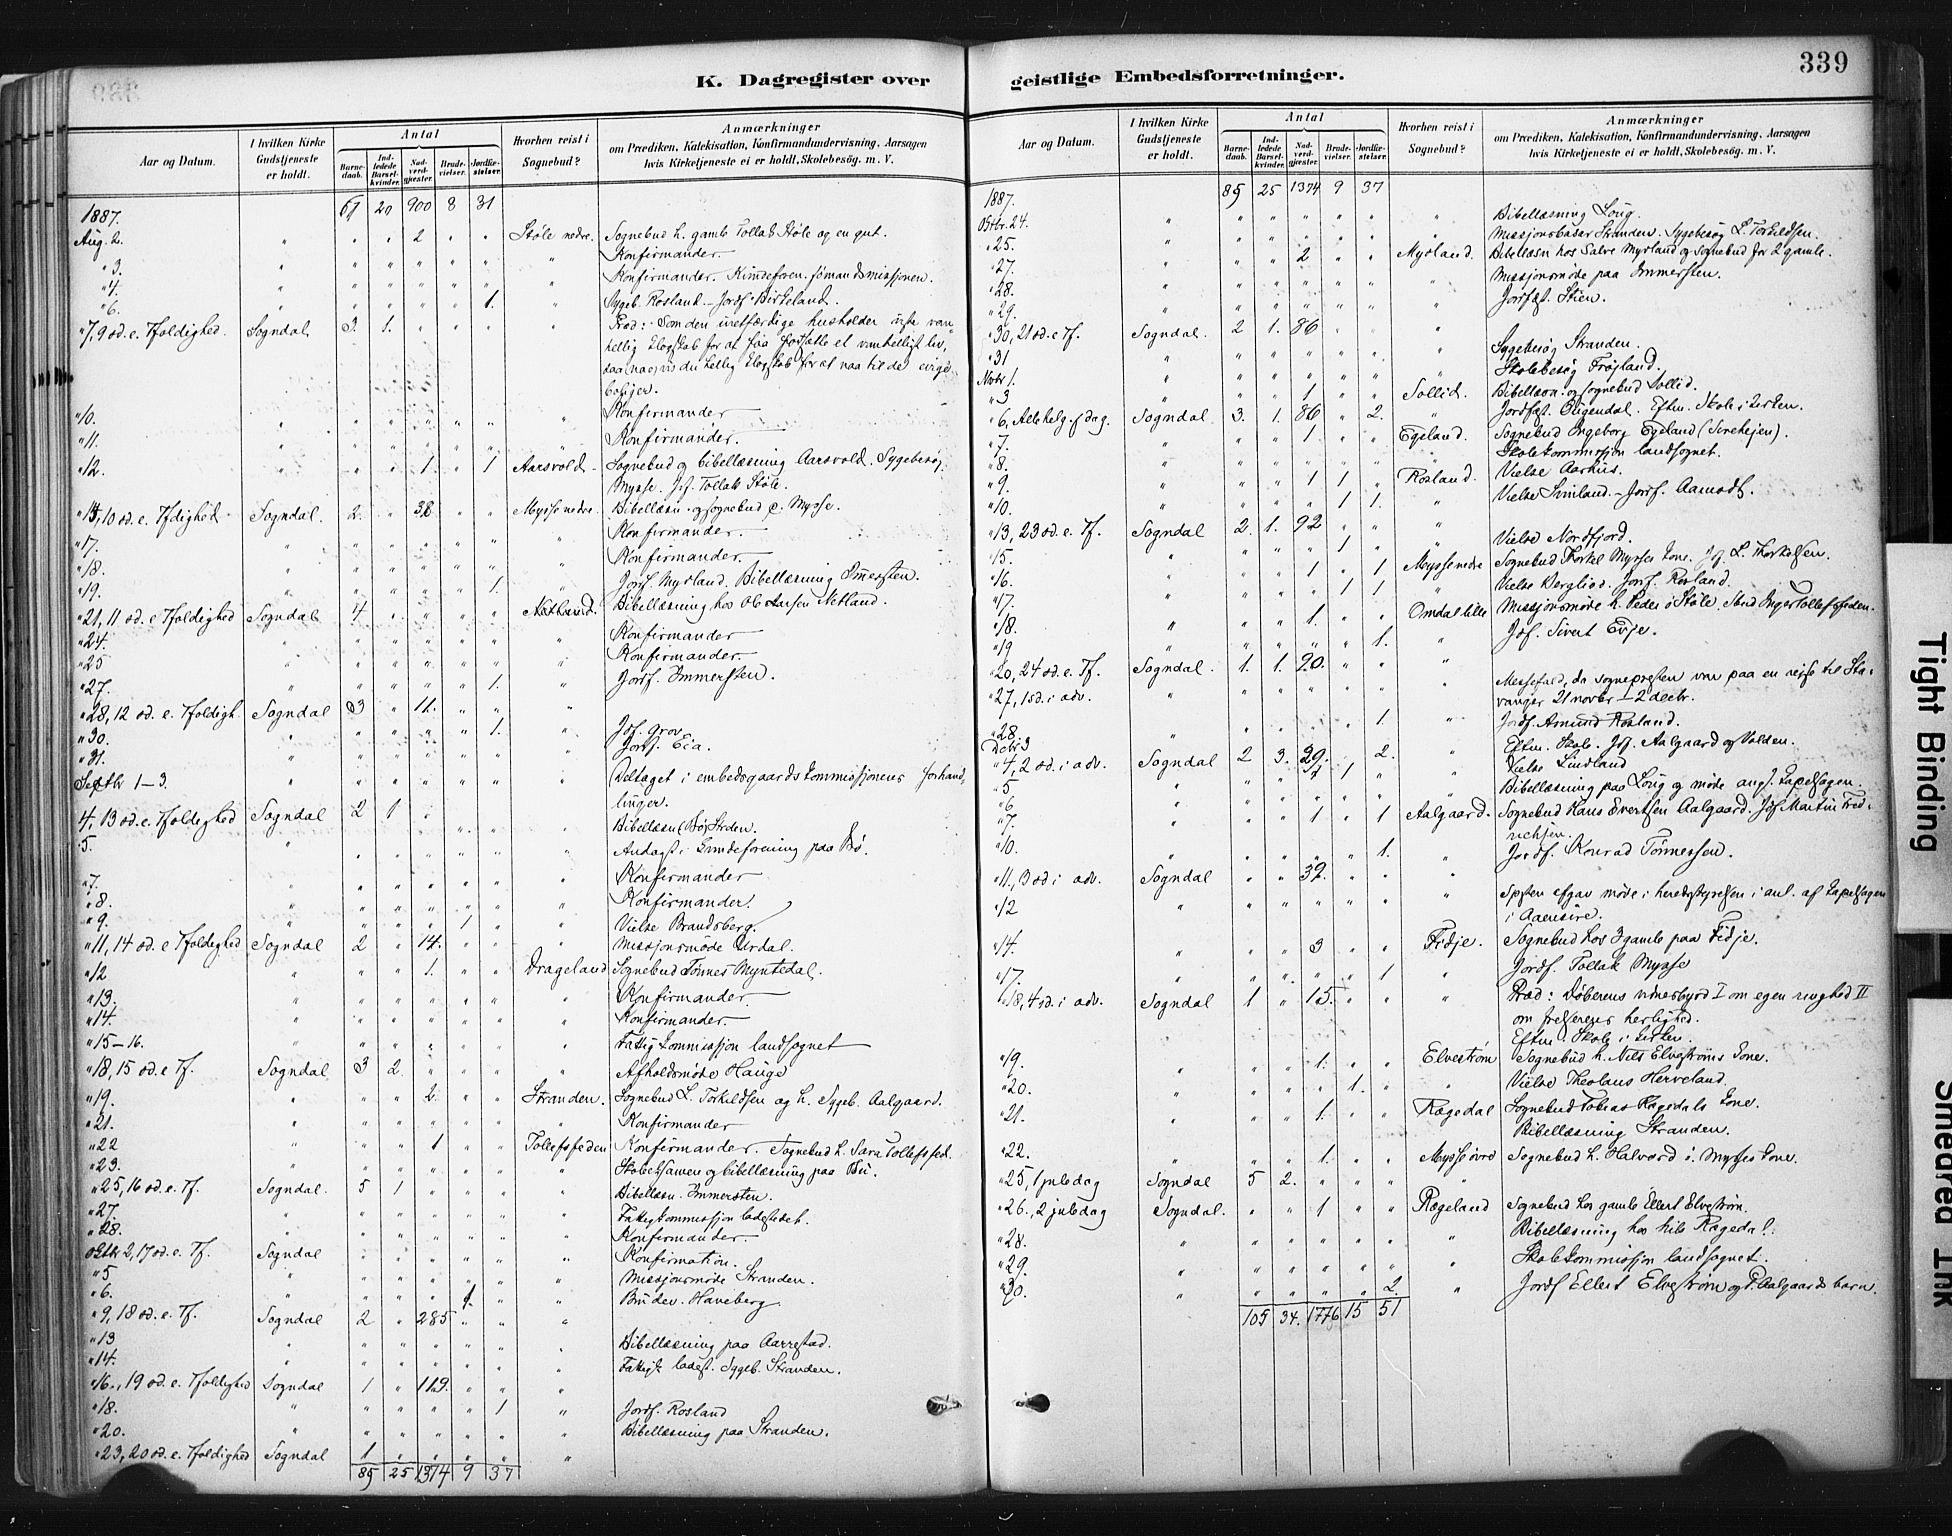 K. Dagregister over
Aar og Datum.
I hvilken Kirke Gudstjeneste er holdt.
Antal
Barnedaab.
Indledede Barselkvinder.
Nadverdgjester.
Brudevielser.
Jordfæstelser.
Hvorhen reist i Sognebud?
Anmærkninger
om Prædiken, Katekisation, Konfirmandundervisning, Aarsagen
hvis Kirketjeneste ei er holdt, Skolebesøg. m. V.
1887. 61 20 900 8 31
Aug. 2. " " " 2 " " Støle nedre. Sognebud h. gamle Tollak Støle og en gut.
"3. " " " " " " " Konfirmander.
"4. " " " " " " " Konfirmander. Kvindeforen. sømandsmissjonen.
"6. " " " " " 1. " Sygeb. Rosland. Jordf. Birkeland.
"7, 9 sd. e. Tfoldighed. Sogndal 3. 1. " " " " Præd: Som den uretfærdige husholder viste van-
hellig klogskab for at faa fortsætte et vanhelligt lev,
saa vis du hellig klogskab for at naa til de evige
boliger.
"10. " " " " " " " Konfirmander
"11. " " " " " " " Konfirmander.
"12. " " " 1. " 1 Aarsvold Sognebud og bibellæsning Aarsvold. Sygebesøg
Mysse. Jf. Tollak Støle.
"14, 10 sd. e. Tfdighed Sogndal. 2. " 38 " " Mysse nedre. Bibellæsn. og sognebud p. Mysse.
"17. " " " " " " " Konfirmander.
"18. " " " " " " " Konfirmander.
"19. " " " " " 1. " Jordf. Mysland. Bibellæsning Imersten.
"21, 11 sd. e Tfoldighed Sogndal 4 " " " " Netland. Bibellæsning hos Ole Larsen Netland.
"24. " " " " " " " Konfirmander
"25 " " " " " " " Konfirmander.
"27. " " " " " 1. " Jordf. Immersten.
"28, 12 sd. e. Tfoldigh. Sogndal 3 " 11. " " "
"30. " " " " " 1. " Jof. Grov
"31. " " " " " " " Jordf. Eia.
Septbr 1-3. " " " " " " " Deltaget i embedsgaardskommissjonens forhand,
linger.
4, 13 sd. e. Tfoldighed Sogndal 2 1 " " " " Bibellæsn (Bø) Strden.
5. " " " " " " " Andagt i Kvindeforening paa Bø.
"7. " " " " " " " Konfirmander
"8. " " " " " " " Konfirmander.
"9. " " " " 1 " " Vielse Brandsberg.
"11, 14 sd. e Tfoldighed Sogndal 2 " 14. " " " Missjonsmøde Urdal.
"12 " " " 1. " " Drageland Sognebud Tønnes Myntedal.
"13. " " " " " " " Konfirmander
"14. " " " " " " " Konfirmander.
"15-16. " " " " " " " Fattigkommissjon landsognet
"18, 15 sd. e Tf. Sogndal 3 2. " " " " Afholdsmøde Hauge
"19. " " " 2. " " Stranden. Sognebud L. Torkildsen og h. Sygeb. Aalgaard.
"21. " " " " " " " Konfirmander
"22 " " " 1 " " Tollefsfeden Konfirmander. Sognebud h. Sara Tollefsfed.
"23. " " " " " " " Skoleksamen og bibellæsning paa Bø.
"25, 16 sd. e. Tf. Sogndal. 5 1 " " " " Bibellæsn. Immersten.
"27. " " " " " " " Fattigkommissjon ladestedet.
"28. " " " " " " " Konfirmander
Oktbr 2, 17 sd. e. Tf. Sogndal " " " " " " Konfirmation.
"5 " " " " " " " Missjonsmøde Stranden.
"6. " " " " 1. " " Brudev. Haneberg.
"9, 18 sd. e. Tf. Sogndal 2 " 285 " " "
"13 " " " " " " " Bibellæsning paa Aarrestad.
"14. " " " " " " " Fattigk ladest. Sygeb. Stranden.
"16., 19 sd. e. Tfoldighed Sogndal 1 " 119. " " "
"18. " " " " " 1 " Jordf. Rosland
"20. " " " " " " " Bibellæsning paa Stranden.
"23, 20 sd. e. Tfoldighed Sogndal 1 " " " " "
85 25 1374 9 37
geistlige Embedsforretninger.
339
Aar og Datum.
I hvilken Kirke Gudstjeneste er holdt.
Antal
Barnedaab.
Indledede Barselkvinder.
Nadverdgjester.
Brudevielser.
Jordfæstelser.
Hvorhen reist i Sognebud?
Anmærkninger
om Prædiken, Katekisation, Konfirmandundervisning, Aarsagen
hvis Kirketjeneste ei er holdt, Skolebesøg. m. V.
1887. 85 25 1374 9 37
Oktbr. 24. " " " " " " " Bibellæsning Loug.
"25. " " " " " " " Missjonsbasar Stranden. Sygebesøg L. Torkildsen.
"27. " " " 2 " " Mysland. Bibellæsn hos Salve Mysland og Sognebud for 2 gamle.
"28. " " " " " " " Missjonsmøde paa Immersten.
"29. " " " " " " " Jorfæst. Stien.
"30, 21 sd. e Tf. Sogndal. 2 1. 86 " " "
"31 " " " " " " " Sygebesøg Stranden.
Novbr 1. " " " " " " " Skolebesøg Frøyland.
"3 " " " 1 " " Sollid. Bibellæsn. og sognebud Sollid.
"6, Allehelg.sdag. Sogndal 3. 1. 86 " 2. " Jordfæst. Øigendal. Eftm. Skole i kirken.
"7. " " " 1 " " Egeland. Sognebud Ingeborg Egeland.
"8. " " " " " " " Skolekommissjon landsognet.
"9. " " " 1 1 " Rosland. Vielse Aarhus.
"10. " " " " 1 1. " Vielse Sviland. Jordf. Aamodt.
"13, 23 sd. e. Tf. Sogndal 2. 1. 92 " " "
"15. " " " " 1 " " Vielse Nordfjord.
"16. " " " 1 " 1 Mysse nedre Sognebud Torkel Mysses kone. Jf. L. Thorkelsen.
"17. " " " " 1 1 " Vielse Bergliod. Jordf. Rosland.
"18. " " " 1. " " Omdal lille Missjonsmøde h. Peder ø Støle. Sbud Inger Tollefsfeden.
"19 " " " " " 1. " Jof. Sivert Evje.
"20, 24 sd. e. Tf. Sogndal. 1. 1. 90. " " "
"27, 1 sd. i adv. " " " " " " " Messefald, da sognepresten var paa en rejse til Sta-
vanger 21 novbr - 2 decbr.
"28. " " " " " 1. " Jordf. Asmund Rosland.
Decbr 3 Eftm. Skole. Jof. Aalgaard og Valden.
"4, 2 sd. i adv. Sogndal 2 3. 39. " 2. " Vielse Lindland
"5 " " " " 1 " " Bibellæsning paa Loug og møde ang. kapelsagen.
"6 " " " " " " "
"7. " " " 1 " 1 Aalgaard. Sognebud Hans Evertsen Aalgaard. Jof Martin Fred-
richsen.
"10. " " " " " 1. " Jordf. Konrad Tønnessen.
"11., 3 sd i adv. Sogndal " " 32. " " "
"12 " " " " " " " Spsten efgav møde i heredsstyrelsen i anl. af kapelsagen
i Aaensire.
"14. " " " 3 " " Fidje. Sognebud hos 3 gamle paa Fidje.
"17. " " " " " 1 " Jordf. Tollak Mysse
"18, 4 sd. i adv. Sogndal 1 " 15. " " " Præd: Døberens vidnesbyrd I om egen ringhed II
om frelserens herlighed.
Eftm. Skole i kirken.
"19. " " " 1. " " Elvestrøm Sognebud h. Nils Elvestrøms kone.
"20. " " " " 1. " " Vielse Theolaus Herveland.
"21. " " " 1. " " Rægedal Sognebud Tobias Rægedals kone.
Bibellæsning Stranden.
"22. " " " 1. " " Mysse øvre Sognebud h. Halvard ø. Mysses kone.
"25, 1 juledag Sogndal 5 2. " " " "
"26., 2 juledag Sogndal. " " 1 " " Rægeland Sognebud hos gamle Ellert Elvestrøm.
"28. " " " " " " " Bibellæsning hos Nils Rægedal.
"29. " " " " " " " Skolekommissjon landsognet.
"30. " " " " " 2. " Jordf Ellert Elvestrøm og P. Aalgaards barn.
105 34. 1776 15 51
Tight Binding
Smeared Ink